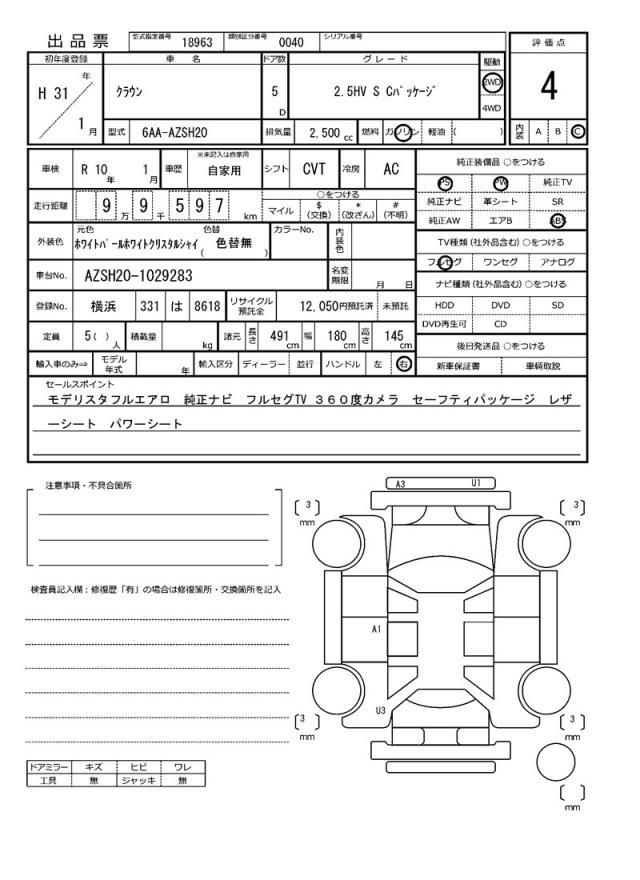 出品票
型式指定番号 18963 類別区分番号 0040 シリアル番号
初年度登録 車名 ドア数 グレード 駆動 評価点
H 31 年 1 月
クラウン
5 D
2.5HV S Cパッケージ
2WD
4WD
4
型式 6AA-AZSH20 排気量 2,500 cc 燃料 ガソリン 軽油 ( )
内装 A B C
車検 R 10 年 1 月 車歴 ※未記入は自家用 自家用 シフト CVT 冷房 AC
純正装備品 ○をつける
PS PW 純正TV
純正ナビ 革シート SR
純正AW エアB ABS
走行距離 9 万 9 千 5 9 7 km
○をつける
マイル $(交換) *(改ざん) #(不明)
外装色 元色 ホワイトパールホワイトクリスタルシャイ 色替 ( 色替無 ) カラーNo. 内装色
TV種類(社外品含む)○をつける
フルセグ ワンセグ アナログ
車台No. AZSH20-1029283 名変期限 月 日
ナビ種類(社外品含む)○をつける
HDD DVD SD
DVD再生可 CD
登録No. 横浜 331 は 8618 リサイクル預託金 12,050円預託済 未預託
定員 5( )人 積載量 kg 諸元 長さ 491 cm 幅 180 cm 高さ 145 cm
後日発送品 ○をつける
新車保証書 車輌取説
輸入車のみ⇒ モデル年式 年 輸入区分 ディーラー 並行 ハンドル 左 右
セールスポイント
モデリスタフルエアロ 純正ナビ フルセグTV 360度カメラ セーフティパッケージ レザ
ーシート パワーシート
注意事項・不具合箇所
検査員記入欄：修復歴「有」の場合は修復箇所・交換箇所を記入
A3 U1
[ 3 ] mm
[ 3 ] mm
A1
U3
[ 3 ] mm
[ 3 ] mm
[ ] mm
ドアミラー キズ ヒビ ワレ
工具 無 ジャッキ 無